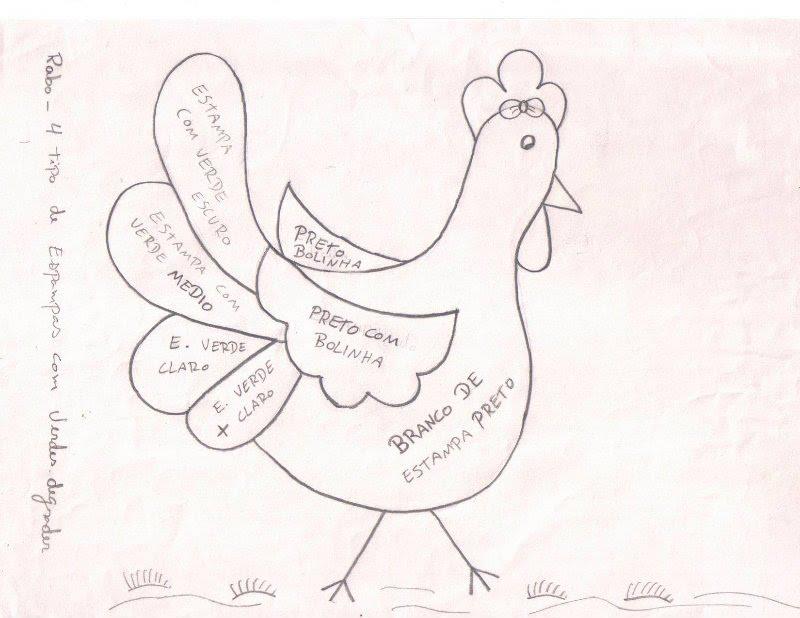 Rabo - 4 tipo de Espampas com Verdes degrader
ESTAMPA
COM VERDE
ESCURO
ESTAMPA COM
VERDE MEDIO
E. VERDE
CLARO
E. VERDE
+ CLARO
PRETO
BOLINHA
PRETO COM
BOLINHA
BRANCO DE
ESTAMPA PRETO